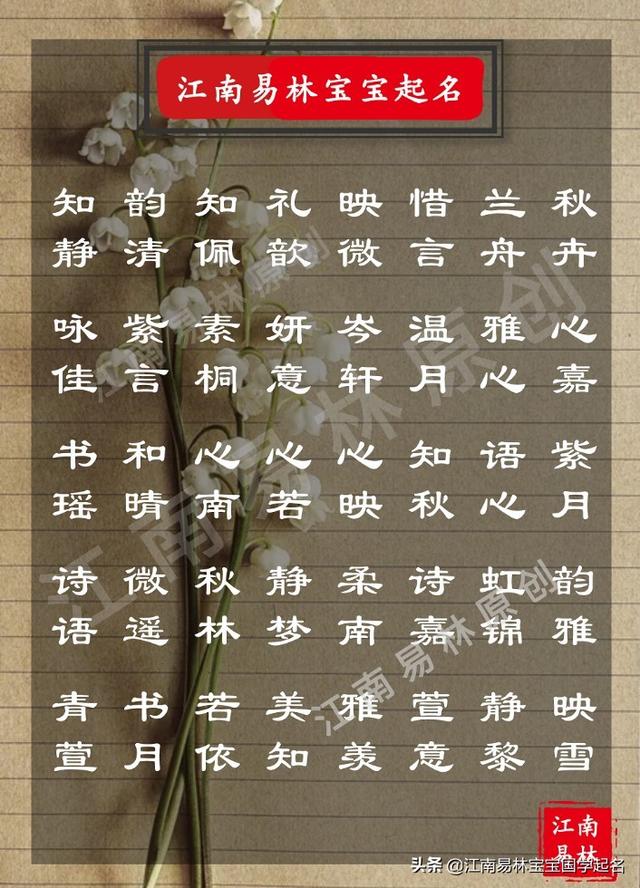 江南易林宝宝起名
知 韵 知 礼 映 惜 兰 秋
静 清 佩 歆 微 言 舟 卉
咏 紫 素 妍 岑 温 雅 心
佳 言 桐 意 轩 月 心 嘉
书 和 心 心 心 知 语 紫
瑶 晴 南 若 映 秋 心 月
诗 微 秋 静 柔 诗 虹 韵
语 遥 林 梦 南 嘉 锦 雅
青 书 若 美 雅 萱 静 映
萱 月 依 知 羡 意 黎 雪
江南易林原创
江南易林原创
江南易林原创
江南
易林
头条 @江南易林宝宝国学起名